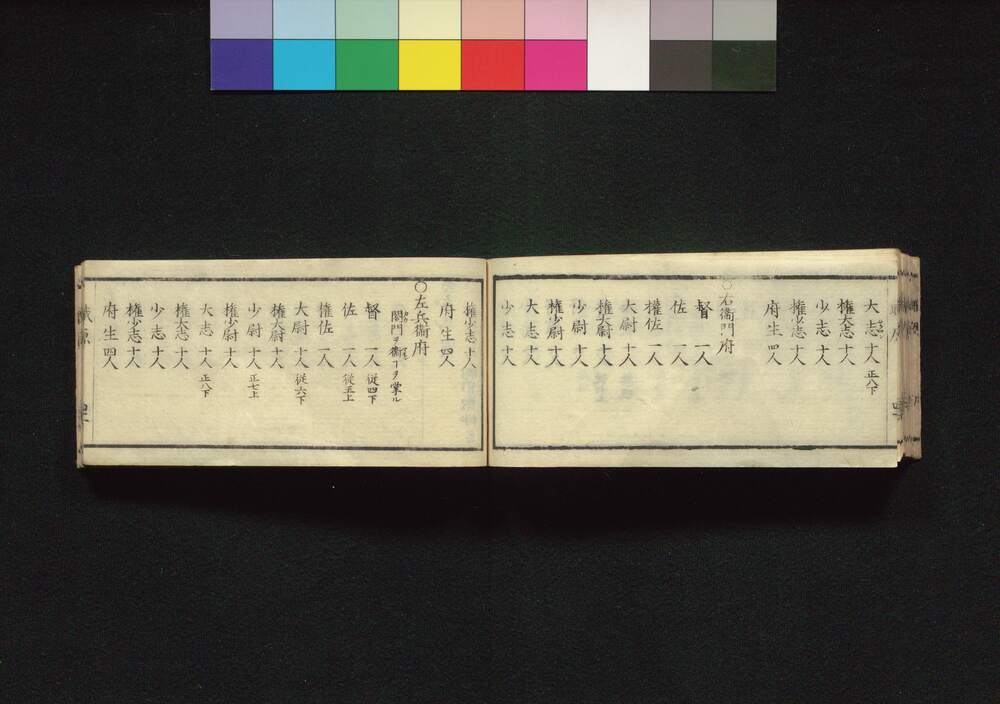 大志 十人 正八下
権大志 十人
少志 十人
権少志 十人
府生 四人
〇右衛門府
督 一人
佐 一人
權佐 一人
大尉 十人
権大尉 十人
少尉 十人
権少尉 十人
大志 十人
少志 十人
権少志 十人
府生 四人
〇左兵衛府
閤門ヲ衛ルヿヲ掌ル
督 一人 従四下
佐 一人 従五上
権佐 一人
大尉 十人 従六下
権大尉 十人
少尉 十人 正七上
権少尉 十人
大志 十人 正八下
権大志 十人
少志 十人
権少志 十人
府生 四人